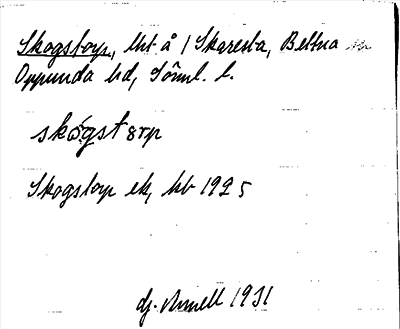 Skogstorp, lht å / Skaresta, Bettna sn
Oppunda hd, Södml. l.
skógstorp
Skogstorp ek, kb 1925
Arnell 1931